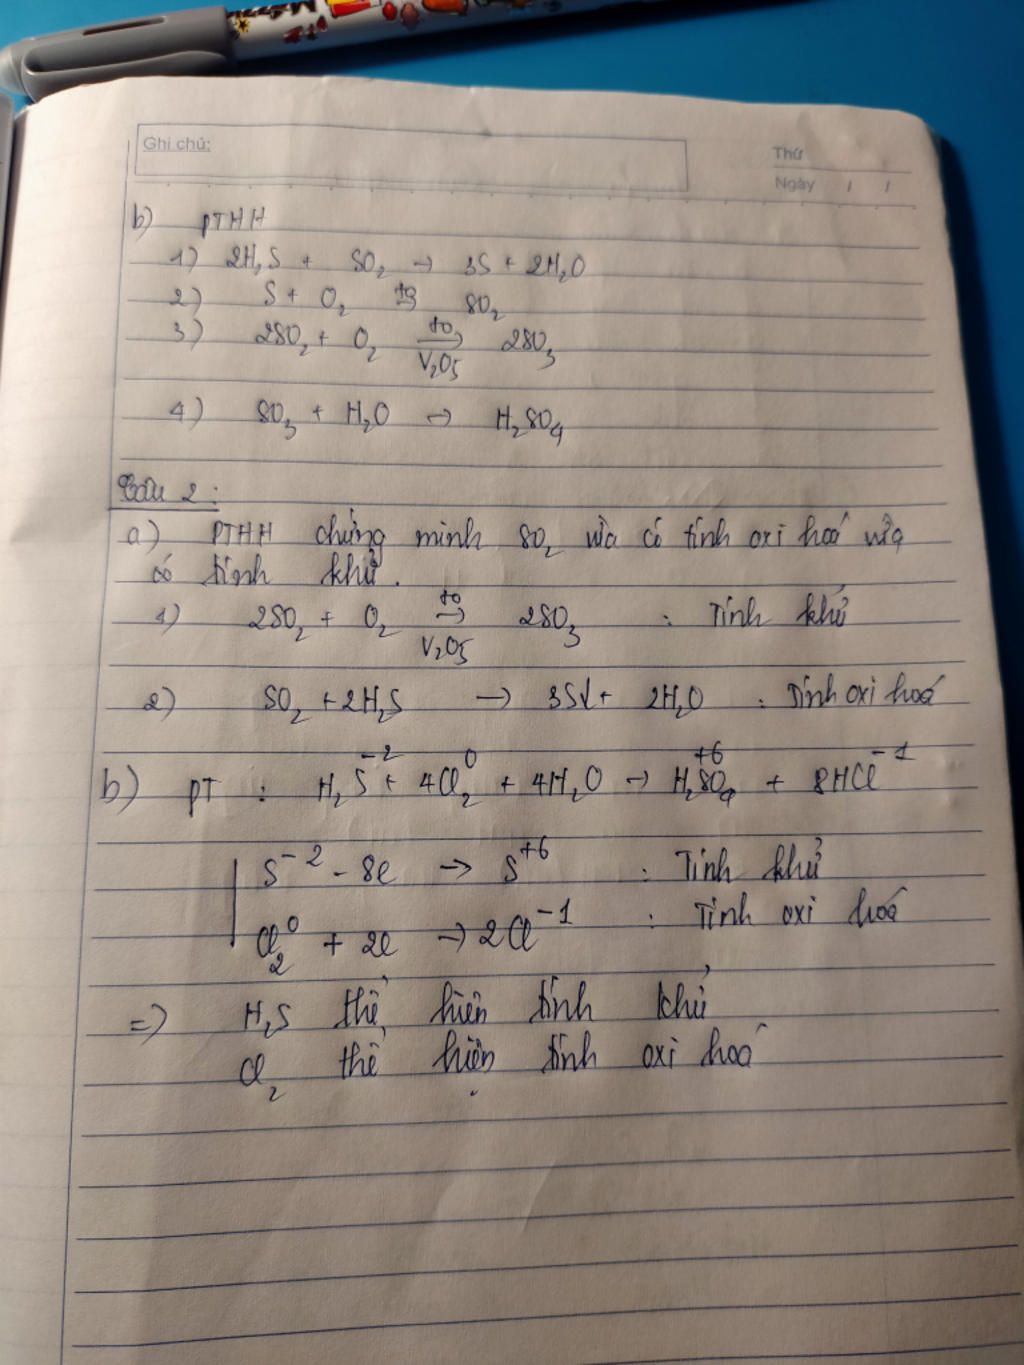 Ghi chú:
Thứ
Ngày / /
b) PTHH
1) 2H₂S + SO₂ → 3S + 2H₂O
2) S + O₂ →(t°) SO₂
3) 2SO₂ + O₂ →(t°, V₂O₅) 2SO₃
4) SO₃ + H₂O → H₂SO₄
Câu 2:
a) PTHH chứng minh SO₂ vừa có tính oxi hoá vừa
có tính khử.
1) 2SO₂ + O₂ →(t°, V₂O₅) 2SO₃ : Tính khử
2) SO₂ + 2H₂S → 3S↓ + 2H₂O : Tính oxi hoá
b) PT : H₂S⁻² + 4Cl₂⁰ + 4H₂O → H₂S⁺⁶O₄ + 8HCl⁻¹
S⁻² - 8e → S⁺⁶ : Tính khử
Cl₂⁰ + 2e → 2Cl⁻¹ : Tính oxi hoá
=> H₂S thể hiện tính khử
Cl₂ thể hiện tính oxi hoá